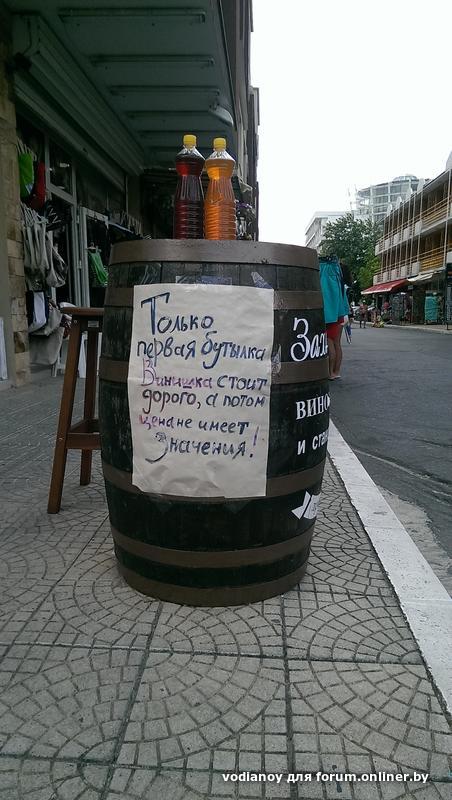 Только
первая бутылка
Винишка стоит
дорого, а потом
цена не имеет
Значения!
и
vodianoy для forum.onliner.by